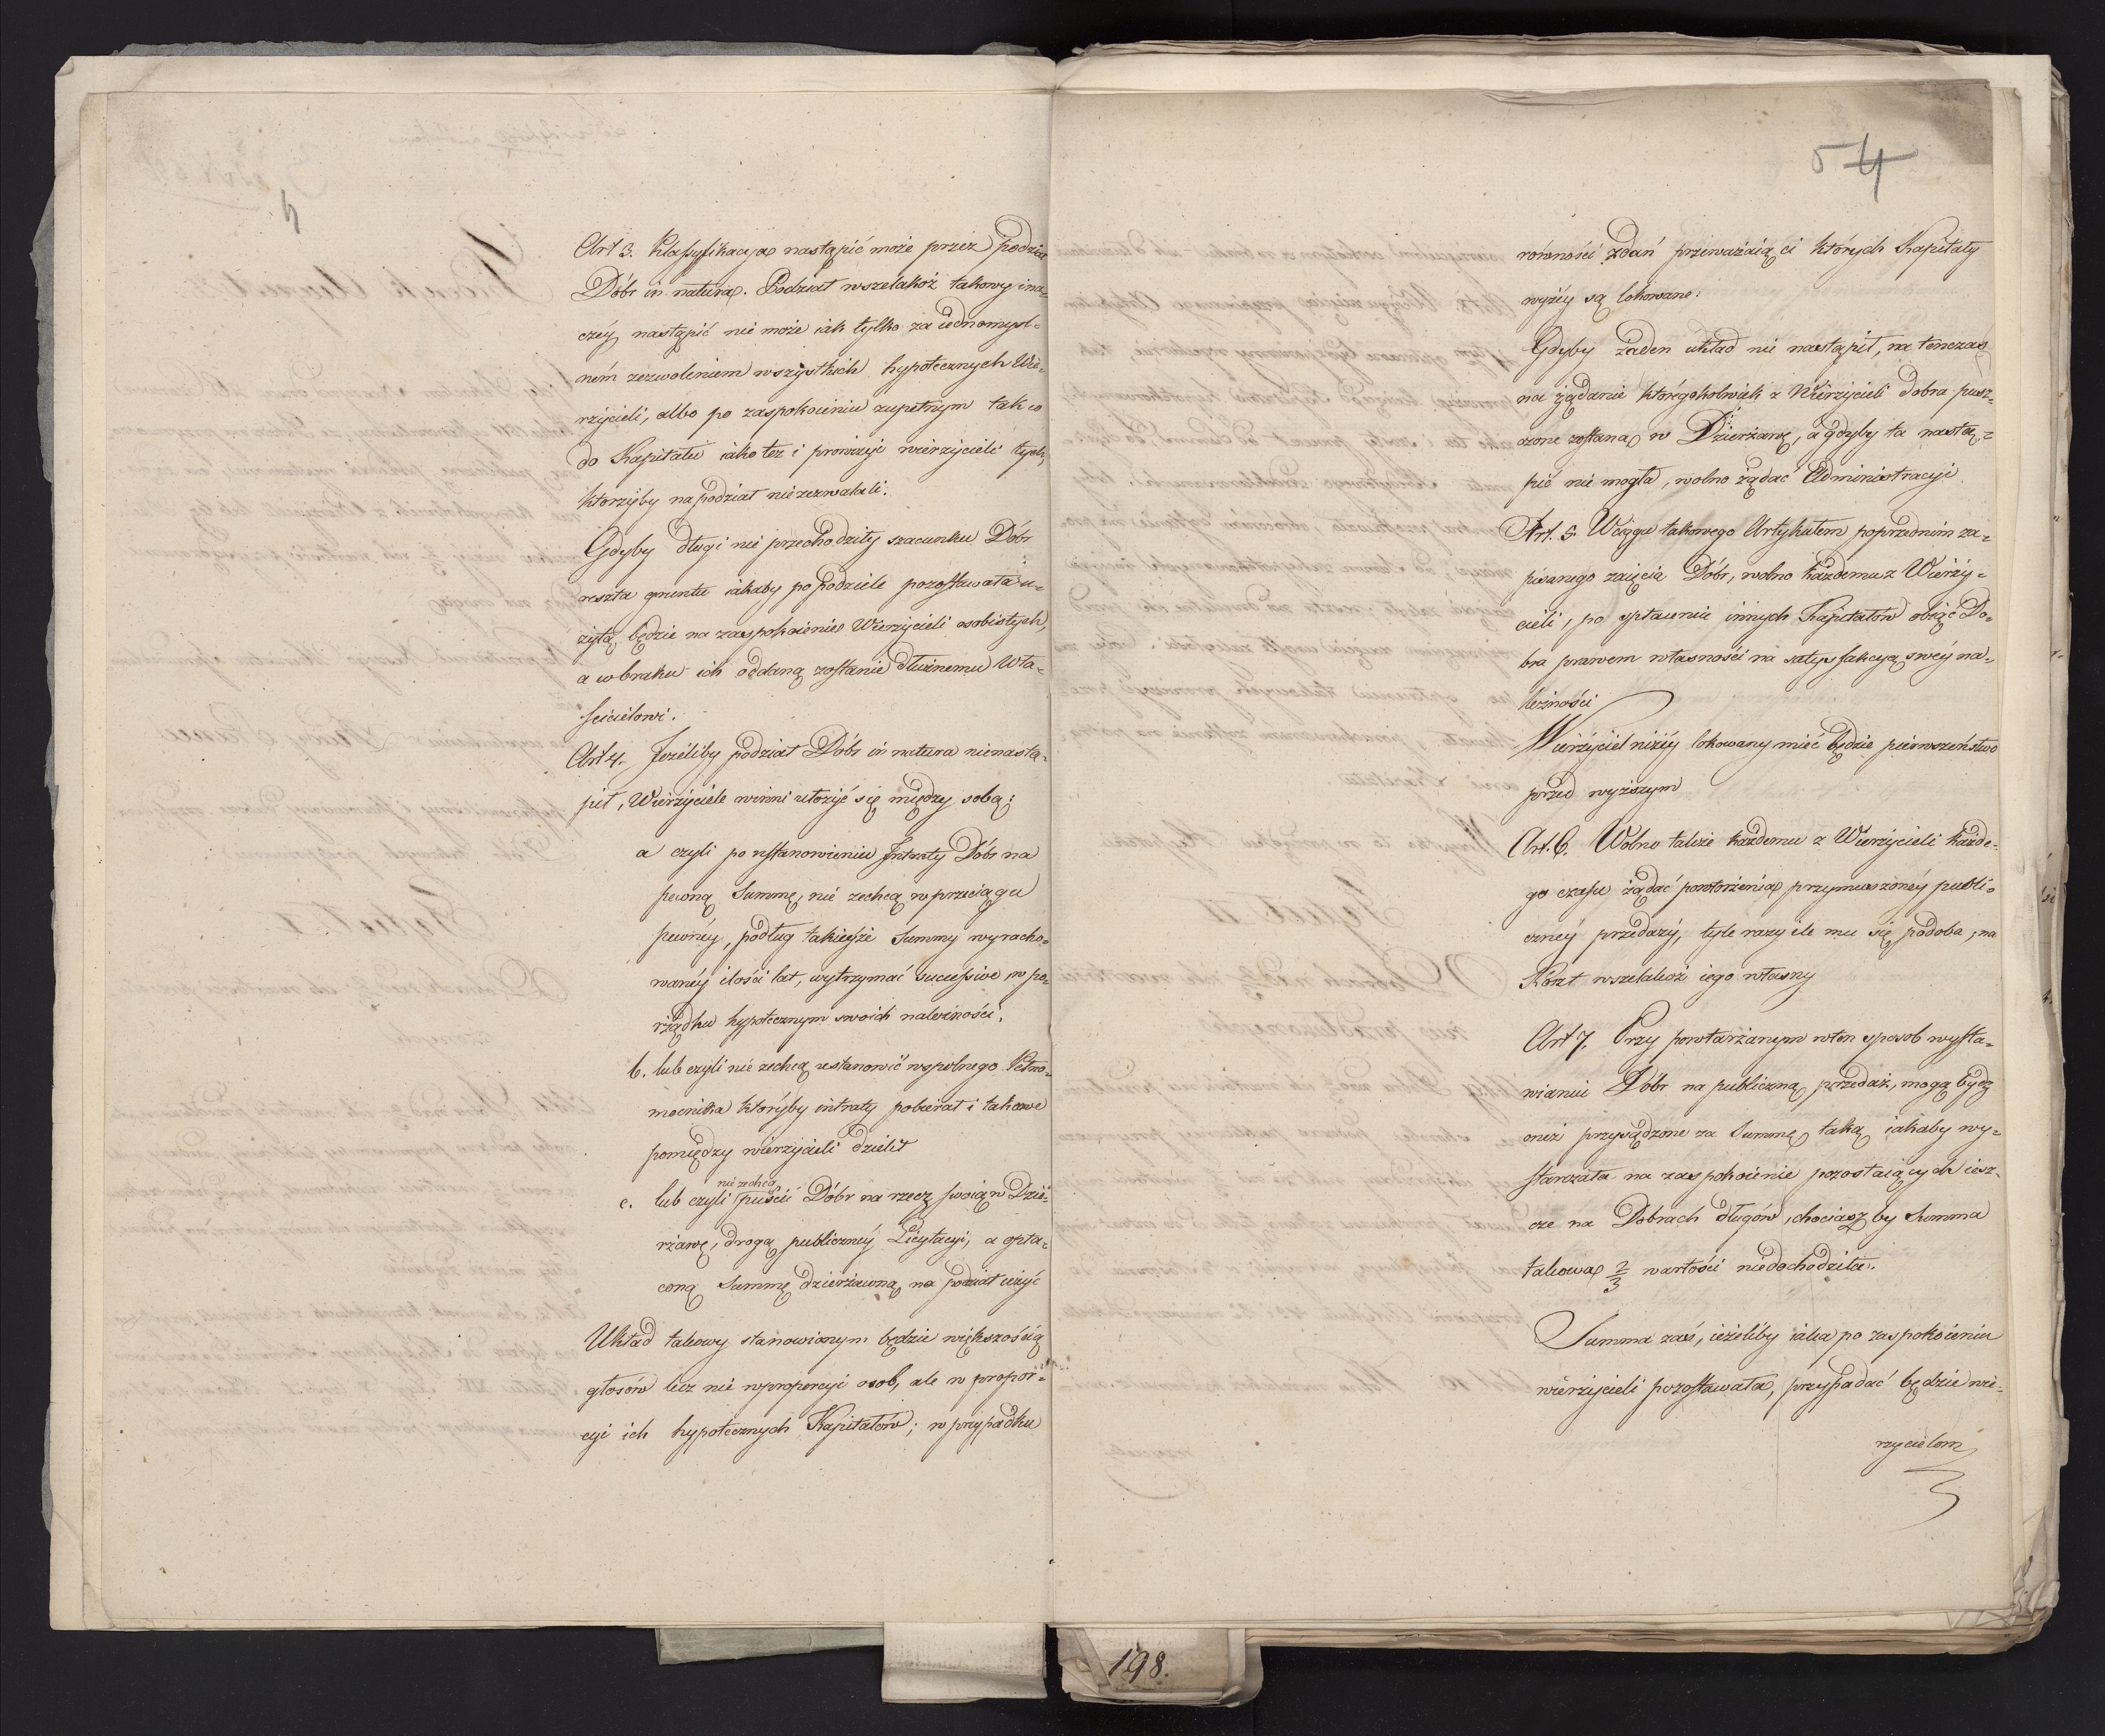 4
Art 3. Klassyfikacya nastąpić może przez podział
Dóbr in natura. Podział wszelakoż takowy ina-
czéy nastąpić nie może iak tylko za iednomysl-
ném zezwoleniem wszystkich hypotecznych Wie-
rzycieli, albo po zaspokoieniu zupełnym tak co
do Kapitału iako tez i prowizyi wierzycieli tych,
ktorzyby na podział niezezwalali.
Gdyby długi nie przechodziły szacunku Dóbr
reszta gruntu iakaby po podziele pozostawała u-
żytą będzie na zaspokoienie Wierzycieli osobistych,
a w braku ich oddaną zostanie dłużnemu Wła-
scicielowi.
Art 4. Jeżeliby podział Dóbr in natura nienastą-
pił, Wierzyciele winni ułożyć się między sobą:
a czyli po ustanowieniu Intraty Dóbr na
pewną Summę, nie zechcą w przeciągu
pewnéy, podług takieyże Summy wyracho-
wanéy ilości lat, wytrzymać successive w po-
rządku hypotecznym swoich należności,
b. lub czyli nie zechcą ustanowić wspolnego Pełno-
mocnika któryby intraty pobierał i takowe
pomiędzy wierzycieli dzielił
nie zechcą
c. lub czyli puścić Dóbr na rzecz swoią w Dzier-
żawę, drogą publicznéy Licytacyi, a opła-
coną Summę dzierżawną na podział użyć
Układ takowy stanowionym będzie większością
głosów lecz nie w proporcyi osob, ale w propor-
cyi ich hypotecznych Kapitałów; w przypadku
54
równości zdań przeważaią ci których Kapitały
wyżéy są lokowane.
Gdyby żaden układ nie nastąpił, na tenczas
na żądanie któregokolwiek z Wierzycieli dobra pusz-
czone zostaną w Dzierżawę, a gdyby ta nastą-
pić nie mogła, wolno żądać Administracyi
Art. 5. W ciągu takowego Artykułem poprzednim za-
pisanego zaięcia Dóbr, wolno każdemu z Wierzy-
cieli, po spłaceniu innych Kapitałów obiąć Do-
bra prawem własności na satysfakcyą swéy na-
leżności
Wierzyciel niżéy lokowany mieć będzie pierwszeństwo
przed wyższym
Art. 6. Wolno także każdemu z Wierzycieli każde-
go czasu żądać powtorzenia przymuszonéy publi-
cznéy przedaży, tyle razy ile mu się podoba, na
Koszt wszelakoż iego własny
Art 7. Przy powtarzanym w ten sposob wysta-
wianiu Dóbr na publiczną przedaż, mogą bydz
oneż przysądzone za Summę taką iakaby wy-
starczała na zaspokoienie pozostaiących iesz-
cze na Dobrach długów, chociasz by Summa
takowa 2/3 wartości niedochodziła.
Summa zaś, ieżeliby iaka po zaspokoieniu
wierzycieli pozostawała, przypadać będzie wie-
rzycielom
198.